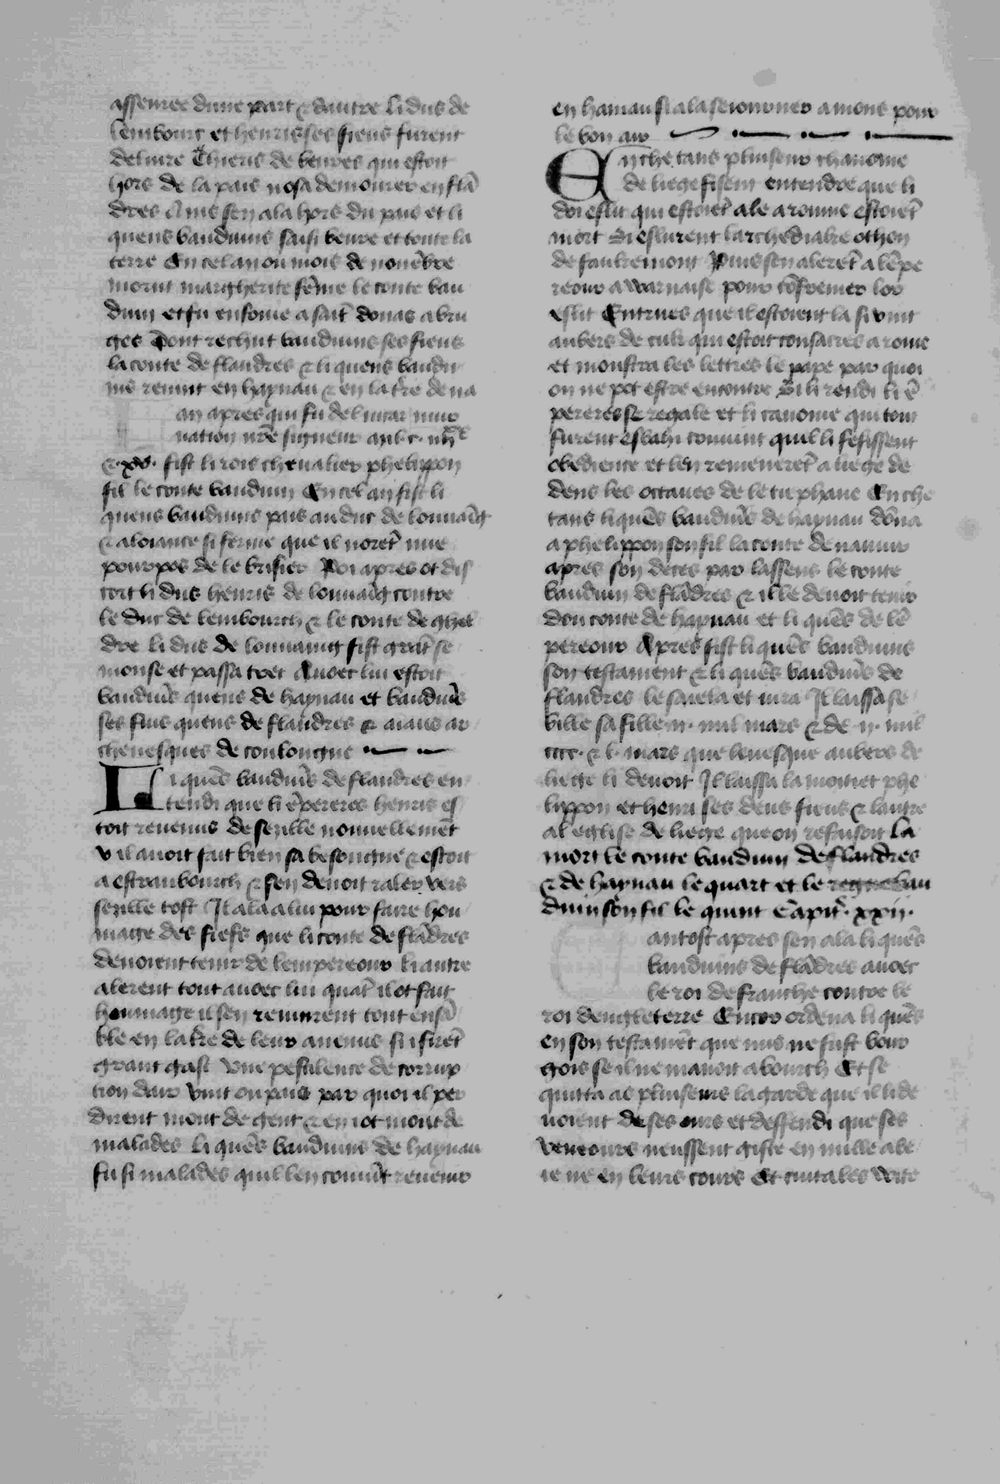 asseuree dune part & dautre li dus de
lembourc et henris ses fieus furent
deliure Thieris de beures qui estoit
hors de la pais nosa demourer en flā
dres Ains sen ala hors du pais et li
quens bauduins saisi beure et toute la
terre En cel an ou mois de nouēbre
morut margherite fēme le conte bau
duin et fu enfouie a sait donas a bru
ges Dont rechut bauduins ses fieus
la conte de flandres & li quens baudu
ins reuint en haynau & en la tre de na
an apres qui fu de lincar
nation nrē signeur m c iiii
& xv fist li rois cheualier phelippon
fil le conte bauduin En cel an fist li
quens bauduins pais au duc de louuaīg
& aloiance si ferme que il noret mie
pourpos de le brisier Poi apres ot dis
cort li dus henris de louuaīg contre
le duc de lembourch & le conte de ghel
dre li dus de louuaing fist grāt se
monse et passa tret Auoec lui estoit
bauduīs quens de haynau et bauduīs
ses fius quens de flandres & ar
cheuesques de coulongne
Li quēs bauduīs de flandres en
tendi que li ēpereres henris es
toit reuenus de sezille nouuellemēt
v il auoit fait bien sa besoungne & estoit
a estraubourch & sen deuoit raler vers
sezille tost Il ala a lui pour faire hou
mage des fiefs que li conte de flādres
deuoient tenir de lempereour li autre
alerent tout auoec lui quāt il ot fait
houmage il sen reuinrent tout ensā
ble en la tre de leur auenue si firēt
grant gast Vne pestilence de corrup
tion dair vint ou pais par quoi il per
dirent mout de gent & en i ot mout de
malades Li quēs bauduins de haynau
fu si malades quil len couuīt reuenir
en hainau si ala seiourner a mons pour
le bon air
En che tans pluiseur chanoine
de liege fisent entendre que li
doi eslit qui estoiēt ale a roume estoiēt
mort Si eslurent larchediakre othon
de faukemont Puis sen alerēt a lēpe
reour a warnaise pour cōfremer lor
eslit Entrues que il estoient la si vint
aubers de cuik qui estoit consacres a rome
et moustra les lettres le pape par quoi
on ne pot estre encontre Si li rendi li ē
pereres se regale et li canoine qui tout
furent esbahi couuint quil li fesissent
obedience et len remenerēt a liege de
dens les octaues de le tiephane En che
tans li quēs bauduīs de haynau dōna
a phelippon son fil la conte de namur
apres son deces par lassens le conte
bauduin de flādres & il le deuoit tenir
dou conte de haynau et li quēs de lē
pereour Apres fist li quēs bauduins
son testament & li quēs bauduīs de
flandres le saiela et iura Il laissa se
bille sa fille ii mil mars & de ii mil
cccc & l mars que leuesque aubers de
liege li deuoit Il laissa la moitiet phe
lippon et henri ses deus fieus & lautre
al eglise de liege que on refusoit La
mort le conte bauduin de flandres
& de haynau le quart et le regne bau
duin son fil le quint Capit xxii
antost apres sen ala li quēs
bauduins de flādres auoec
le roi de franche contre le
roi dengleterre Encor ordena li quēs
en son testamēt que nus ne fust bour
gois se il ne manoit a bourch Et se
quitta as pluiseurs la garde que il i de
uoient de ses ours et deffendi que ses
veneours neussent giste en nulle abe
ie ne en leurs cours Et cuitables